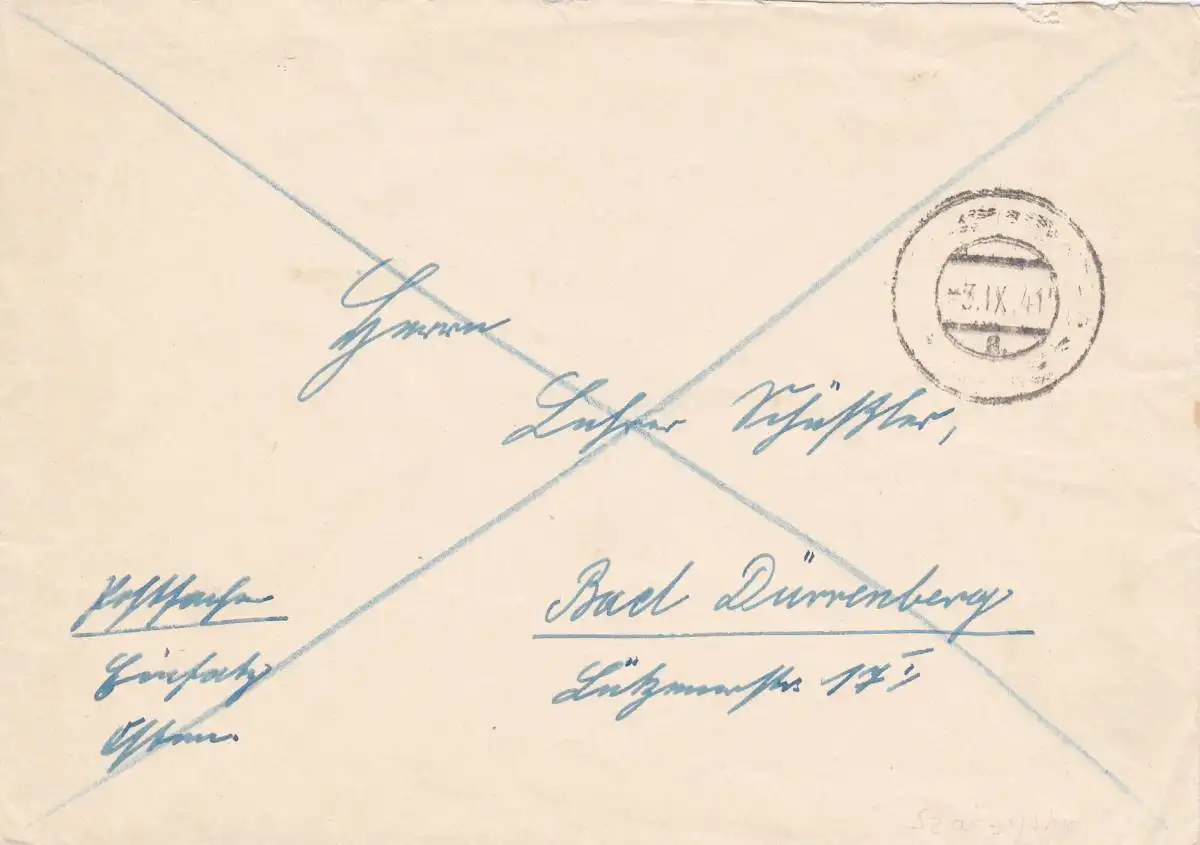 3.IX.41
a
Herrn
Lehrer Schüßler,
Postsache
Einsatz
Osten.
Bad Dürrenberg
Lützenerstr. 17 I